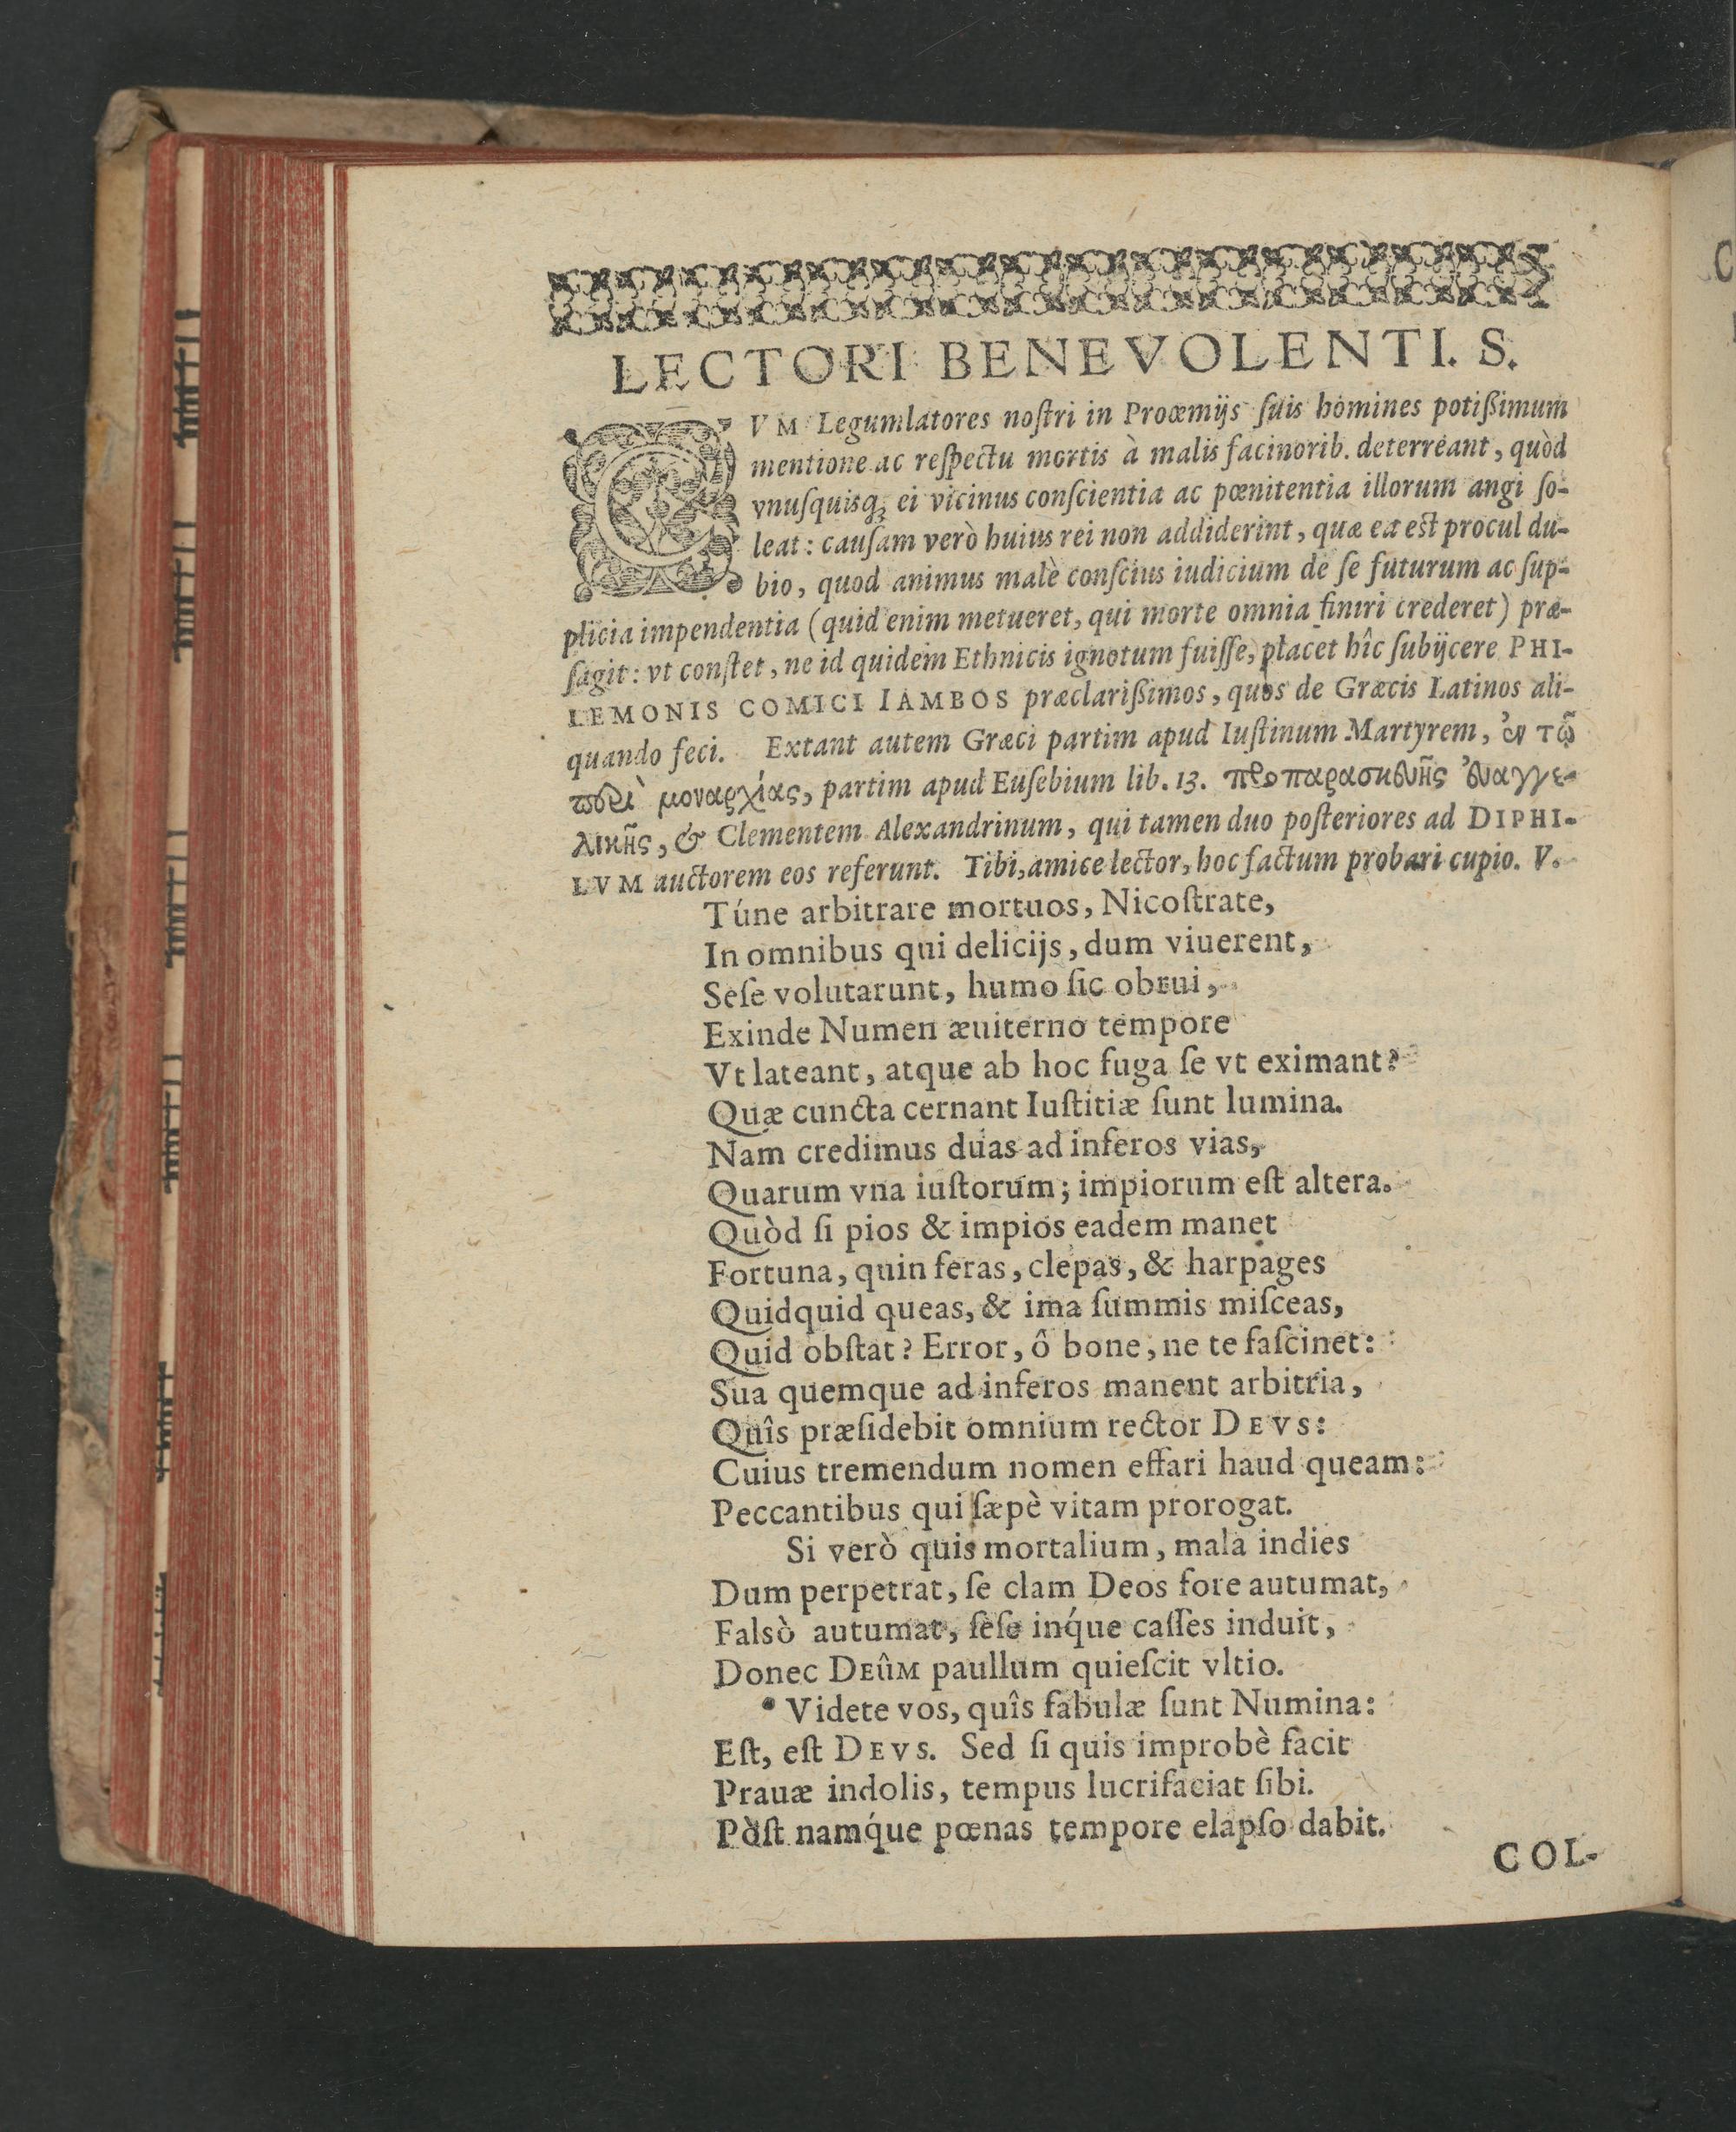 LECTORI BENEVOLENTI. S.
CVM Legumlatores noſtri in Proœmijs ſuis homines potißimum
mentione ac reſpectu mortis à malis facinorib. deterreant, quòd
vnuſquisq; ei vicinus conſcientia ac pœnitentia illorum angi ſo-
leat: cauſam verò huius rei non addiderint, quæ ea est procul du-
bio, quod animus malè conſcius iudicium de ſe futurum ac ſup-
plicia impendentia (quid enim metueret, qui morte omnia finiri crederet) præ-
ſagit: vt conſtet, ne id quidem Ethnicis ignotum fuiſſe, placet hîc ſubijcere PHI-
LEMONIS COMICI IAMBOS præclarißimos, quos de Græcis Latinos ali-
quando feci. Extant autem Græci partim apud Iuſtinum Martyrem, ἐν τῷ
περὶ μοναρχίας, partim apud Euſebium lib. 13. προπαρασκευῆς ἐυαγγε-
λικῆς, & Clementem Alexandrinum, qui tamen duo poſteriores ad DIPHI-
LVM auctorem eos referunt. Tibi, amice lector, hoc factum probari cupio. V.
Túne arbitrare mortuos, Nicoſtrate,
In omnibus qui delicijs, dum viuerent,
Seſe volutarunt, humo ſic obrui,
Exinde Numen æuiterno tempore
Vt lateant, atque ab hoc fuga ſe vt eximant?
Quæ cuncta cernant Iuſtitiæ ſunt lumina.
Nam credimus duas ad inferos vias,
Quarum vna iuſtorum; impiorum eſt altera.
Quòd ſi pios & impios eadem manet
Fortuna, quin feras, clepas, & harpages
Quidquid queas, & ima ſummis miſceas,
Quid obſtat? Error, ô bone, ne te faſcinet:
Sua quemque ad inferos manent arbitria,
Quîs præſidebit omnium rector DEVS:
Cuius tremendum nomen effari haud queam:
Peccantibus qui ſæpè vitam prorogat.
Si verò quis mortalium, mala indies
Dum perpetrat, ſe clam Deos fore autumat,
Falsò autumat, ſeſe inq́ue caſſes induit,
Donec DEÛM paullum quieſcit vltio.
Videte vos, quîs fabulæ ſunt Numina:
Eſt, eſt DEVS. Sed ſi quis improbè facit
Prauæ indolis, tempus lucrifaciat ſibi.
Pòſt namq́ue pœnas tempore elapſo dabit.
COL-